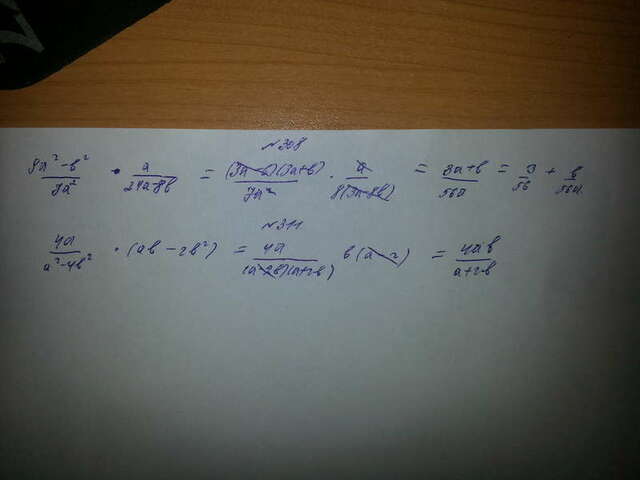 №308
9a²-b²/7a² · a/24a-8b = (3a-b)(3a+b)/7a² · a/8(3a-b) = 3a+b/56a = 3/56 + b/56a
№311
4a/a²-4b² · (ab-2b²) = 4a/(a-2b)(a+2b) b(a-2) = 4ab/a+2b